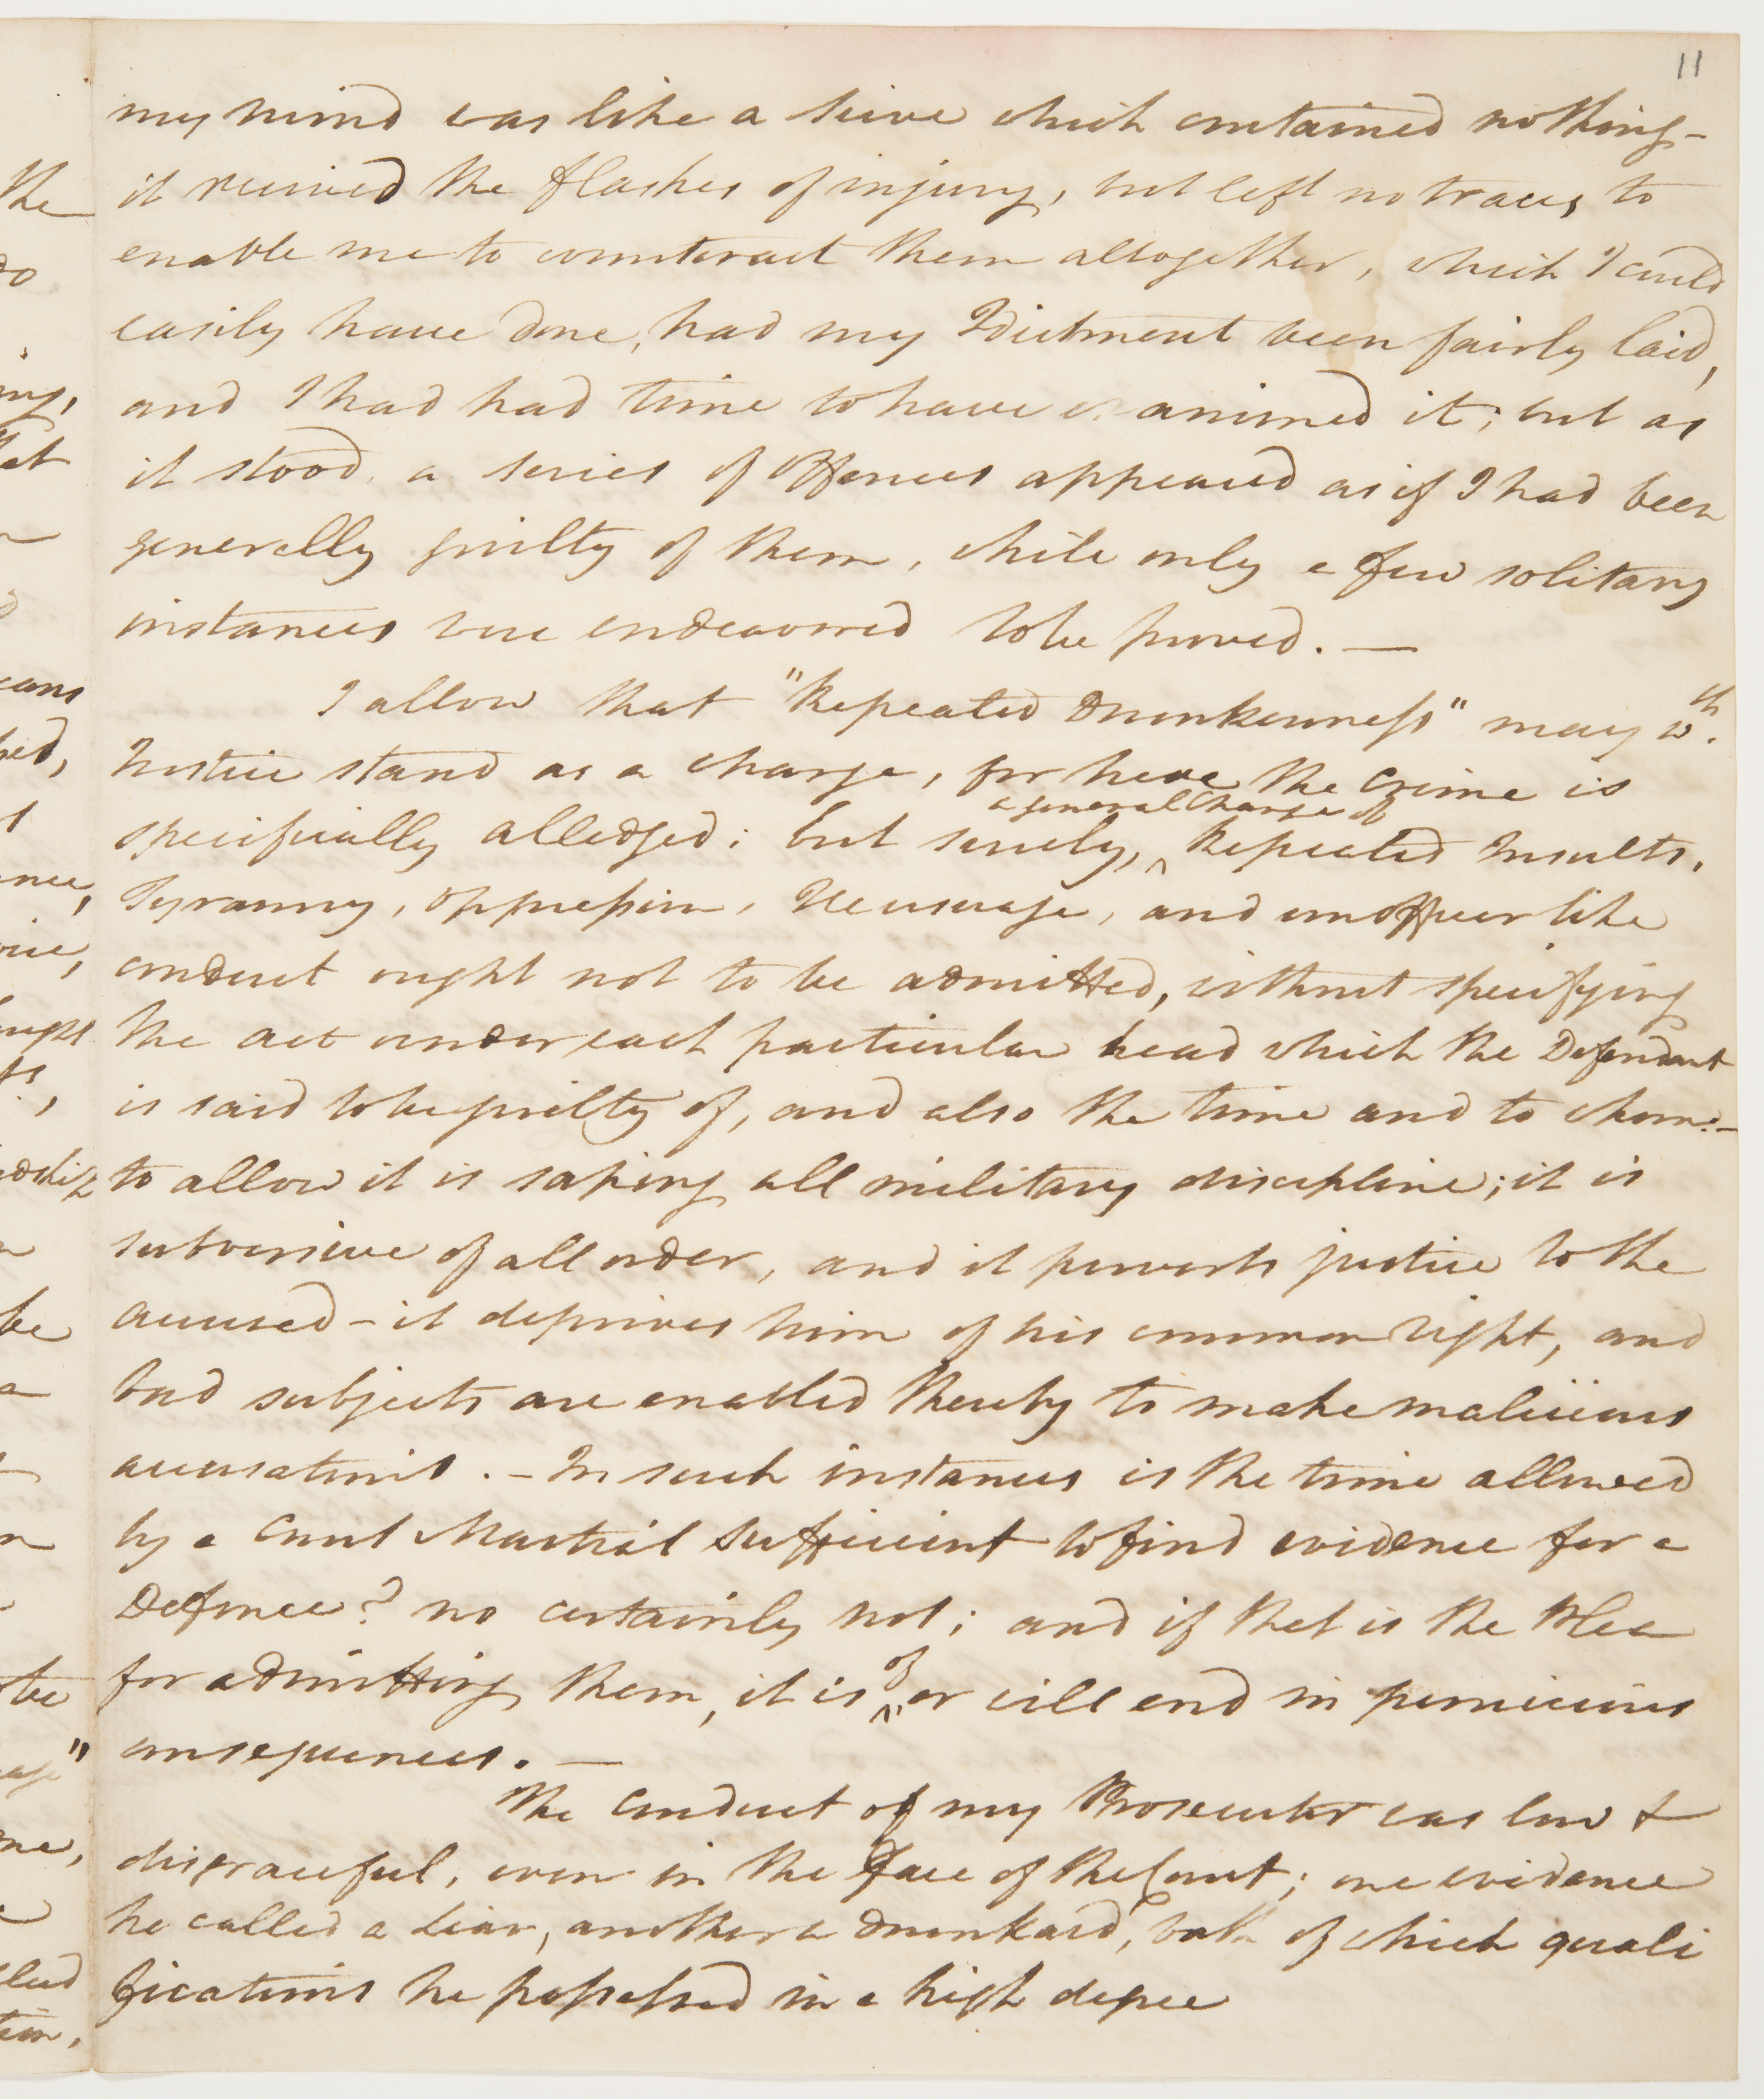 11
my mind was like a seive which contained nothing -
it received the flashes of injury, but left no traces to
enable me to counteract them altogether, which I could
easily have done, had my Idictment been fairly laid,
and I had had time to have examined it; but as
it stood, a series of Offences appeared as if I had been
generally guilty of them, while only a few solitary
instances were endeavored to be proved. —
I allow that "Repeated Drunkenness" may wth.
Justice stand as a charge, for here the Crime is
specifically alledged; but surely, ^ a general Charge of Repeated Insults,
Tyranny, Oppression, Ill usage, and unofficer like
conduct ought not to be admitted, without specifying
the act under each particular head which the Defendant
is said to be guilty of, and also the time and to whom: -
to allow it is saping all military discipline; it is
subversive of all order, and it perverts justice to the
accused - it deprives him of his common right, and
bad subjects are enabled thereby to make malicious
accusations. - In such instances is the time allowed
by a Court Martial sufficient to find evidence for a
Defence? no certainly not; and if that is the Plea
for admitting them, it is ^ of or will end in pernicious
consequences. —
The Conduct of my Prosecutor was low &
disgraceful, even in the face of the Court; one evidence
he called a Liar, another a Drunkard, both of which quali
fications he possessed in a high degree
the
do
ing,
at
ught
be
a
be
me,